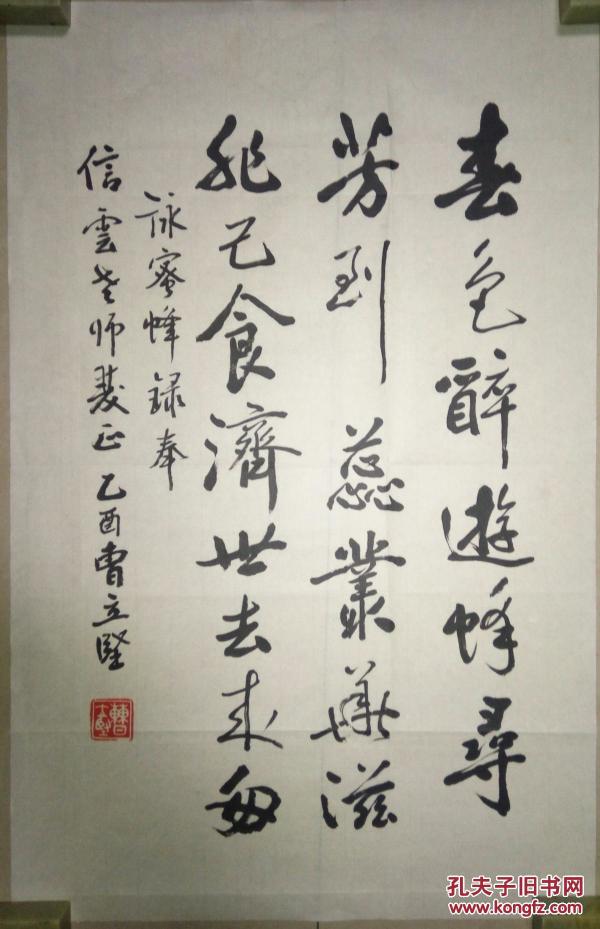 春色醉遊蜂尋
芳到蕊叢華滋
非己食濟世去来匆
詠蜜蜂録奉
信雲老师教正 乙酉曹立堅
孔夫子旧书网
www.kongfz.com